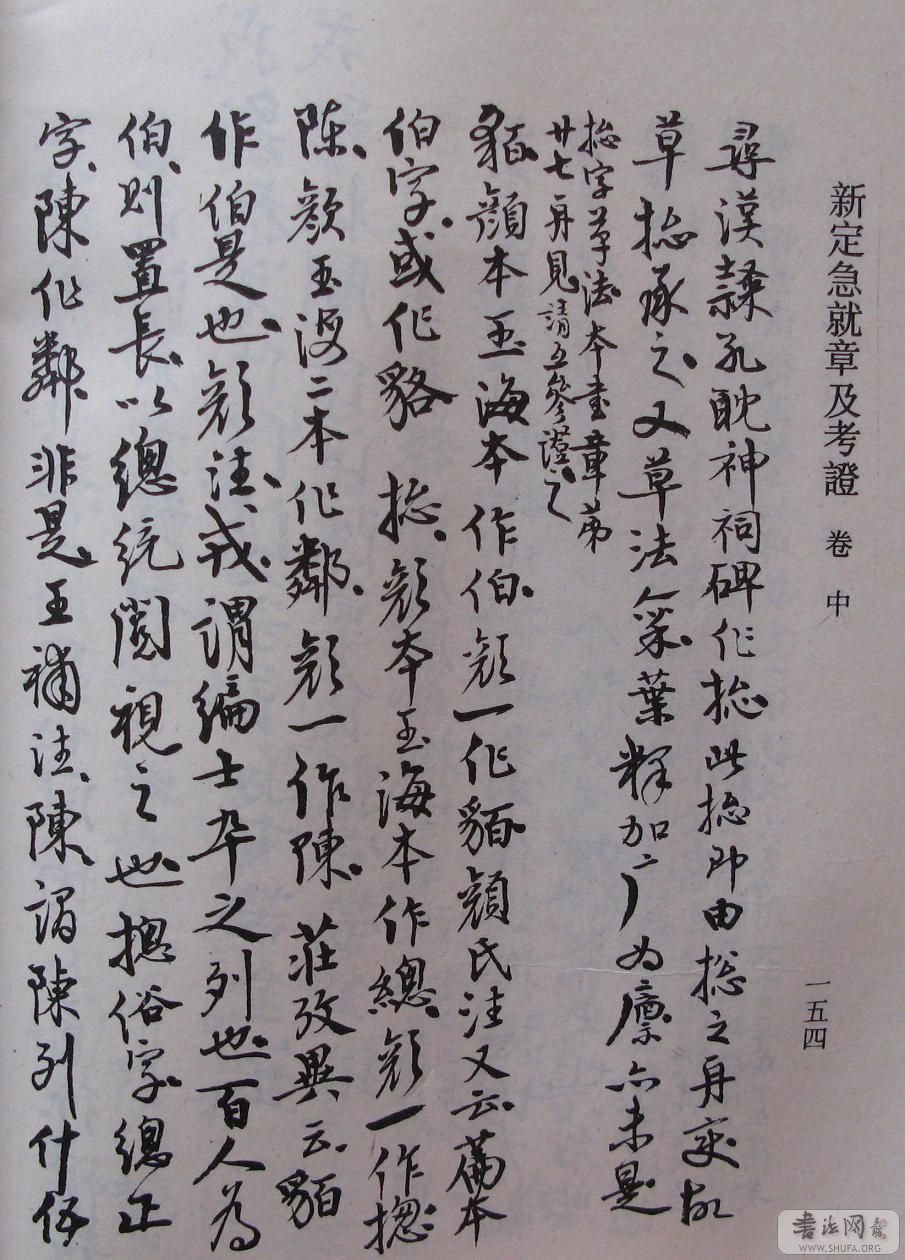 新定急就章及考證 卷中
一五四
尋漢隸孔耽神祠碑作捴此捴即由揔之再變故
草捴承之又草法稟葉釋加广为廪亦未是
捴字草法本書章第
廿七再見請互參證之
貊顏本玉海本作伯顏一作貊顏氏注又云舊本
伯字或作貉 捴顏本玉海本作總顏一作摠
陳顏玉海二本作鄰顏一作陳 莊攷異云貊
作伯是也顏注或謂編士卒之列也百人為
伯則置長以總統閱視之也摠俗字總正
字陳作鄰非是王補注陳謂陳列什伍
書法网
WWW.SHUFA.ORG